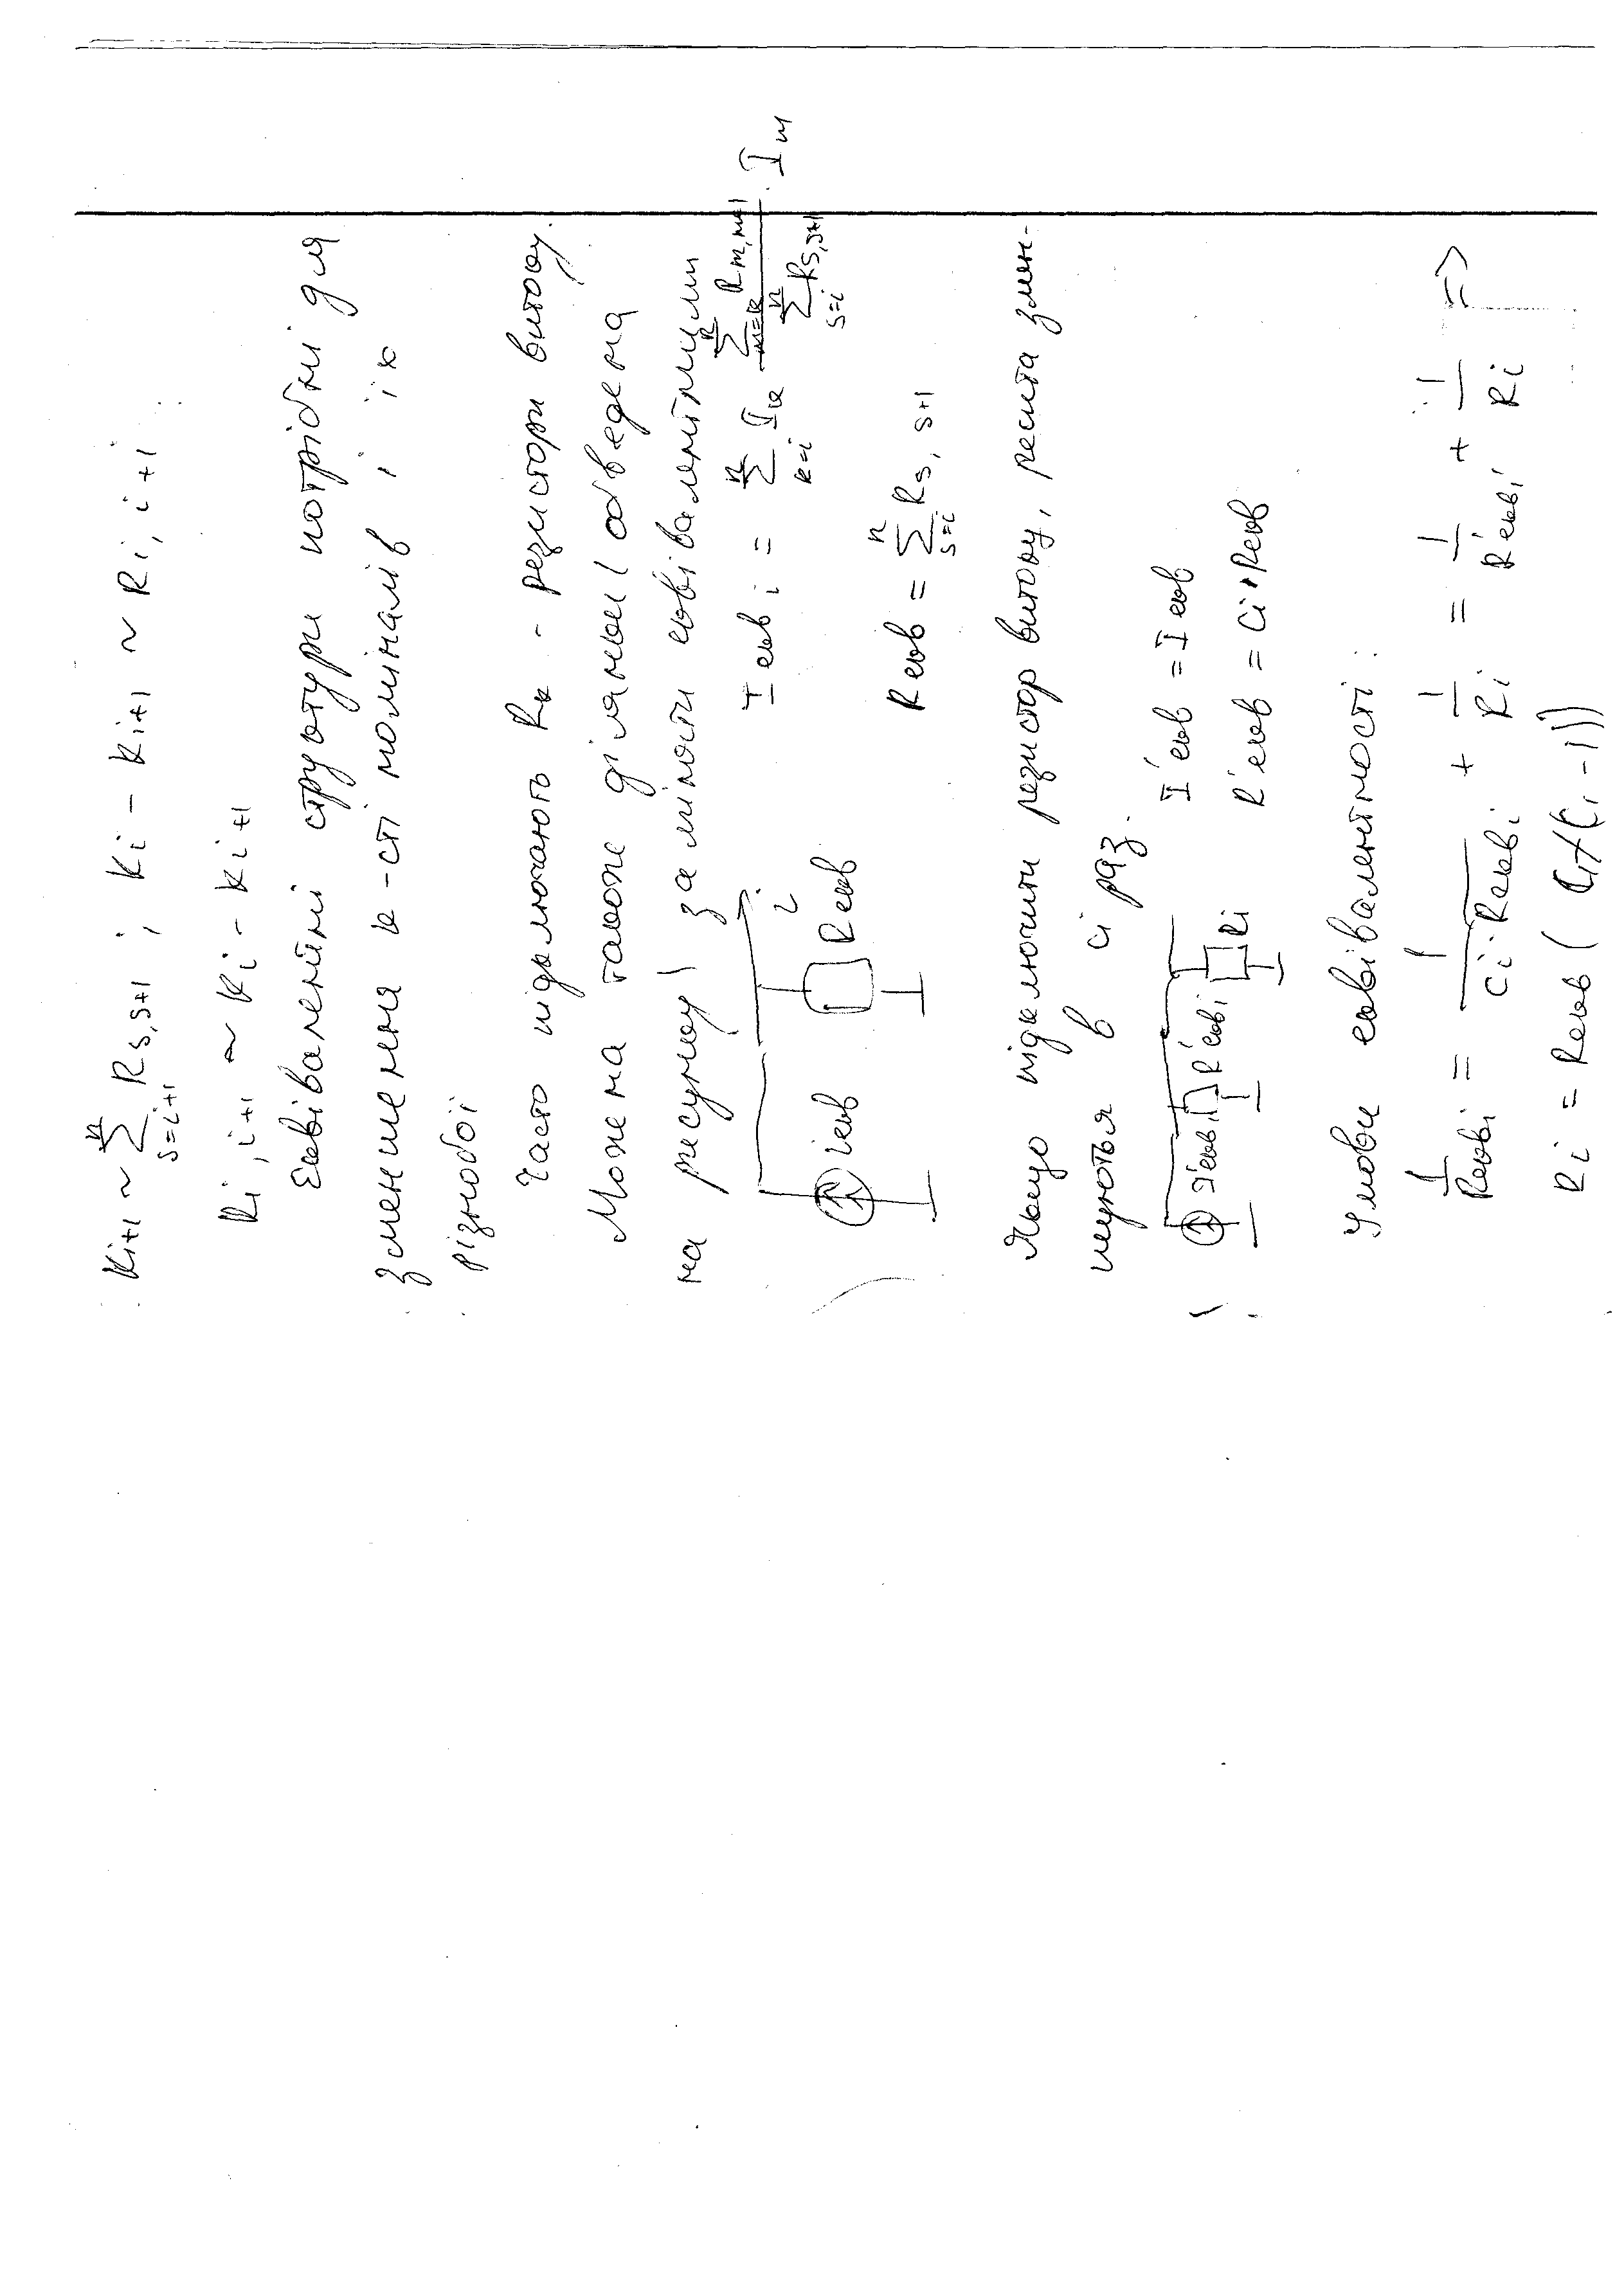 Ki+1 ~ n∑s=i+1 Rs,s+1 ; Ki - Ki+1 ~ Ri,i+1
Ri,i+1 ~ Ki - Ki+1
Еквівалентні структури потрібні для
зменшення к-сті номіналів і їх
різнобої
Часто підключають Rк - резистори витоку.
Можна також ділянки (обведена
на рисунку) замінити еквівалентними
i Iекв i = n∑k=i Iк n∑m=k Rm,m+1 / n∑s=i Rs,s+1 · Iк
iекв Rекв
Rекв = n∑s=i Rs,s+1
Якщо підключити резистор витоку, решта змен-
шуються в ci раз.
I'екв = Iекв
I'екв i R'екв i Ri
R'екв = ci · Rекв
Умови еквівалентності:
1/Rекв i = 1/ci·Rекв i + 1/Ri = 1/R'екв i + 1/Ri =>
Ri = Rекв ( ci/(ci -1))